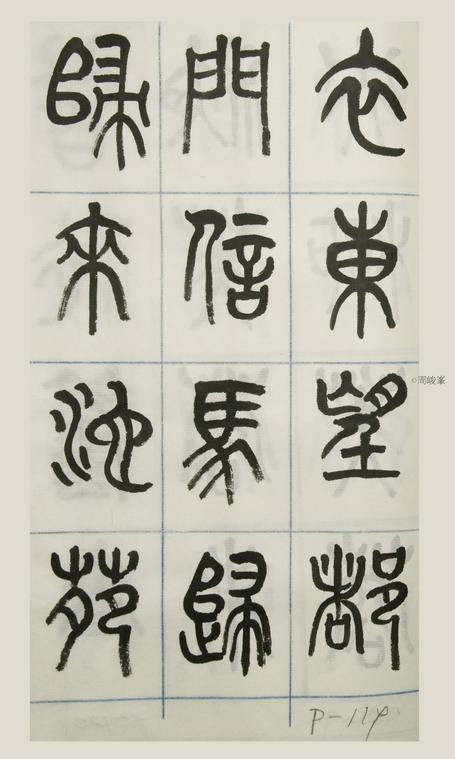 衣東望都
門信馬歸
歸來池苑
P-114
©周峻峯